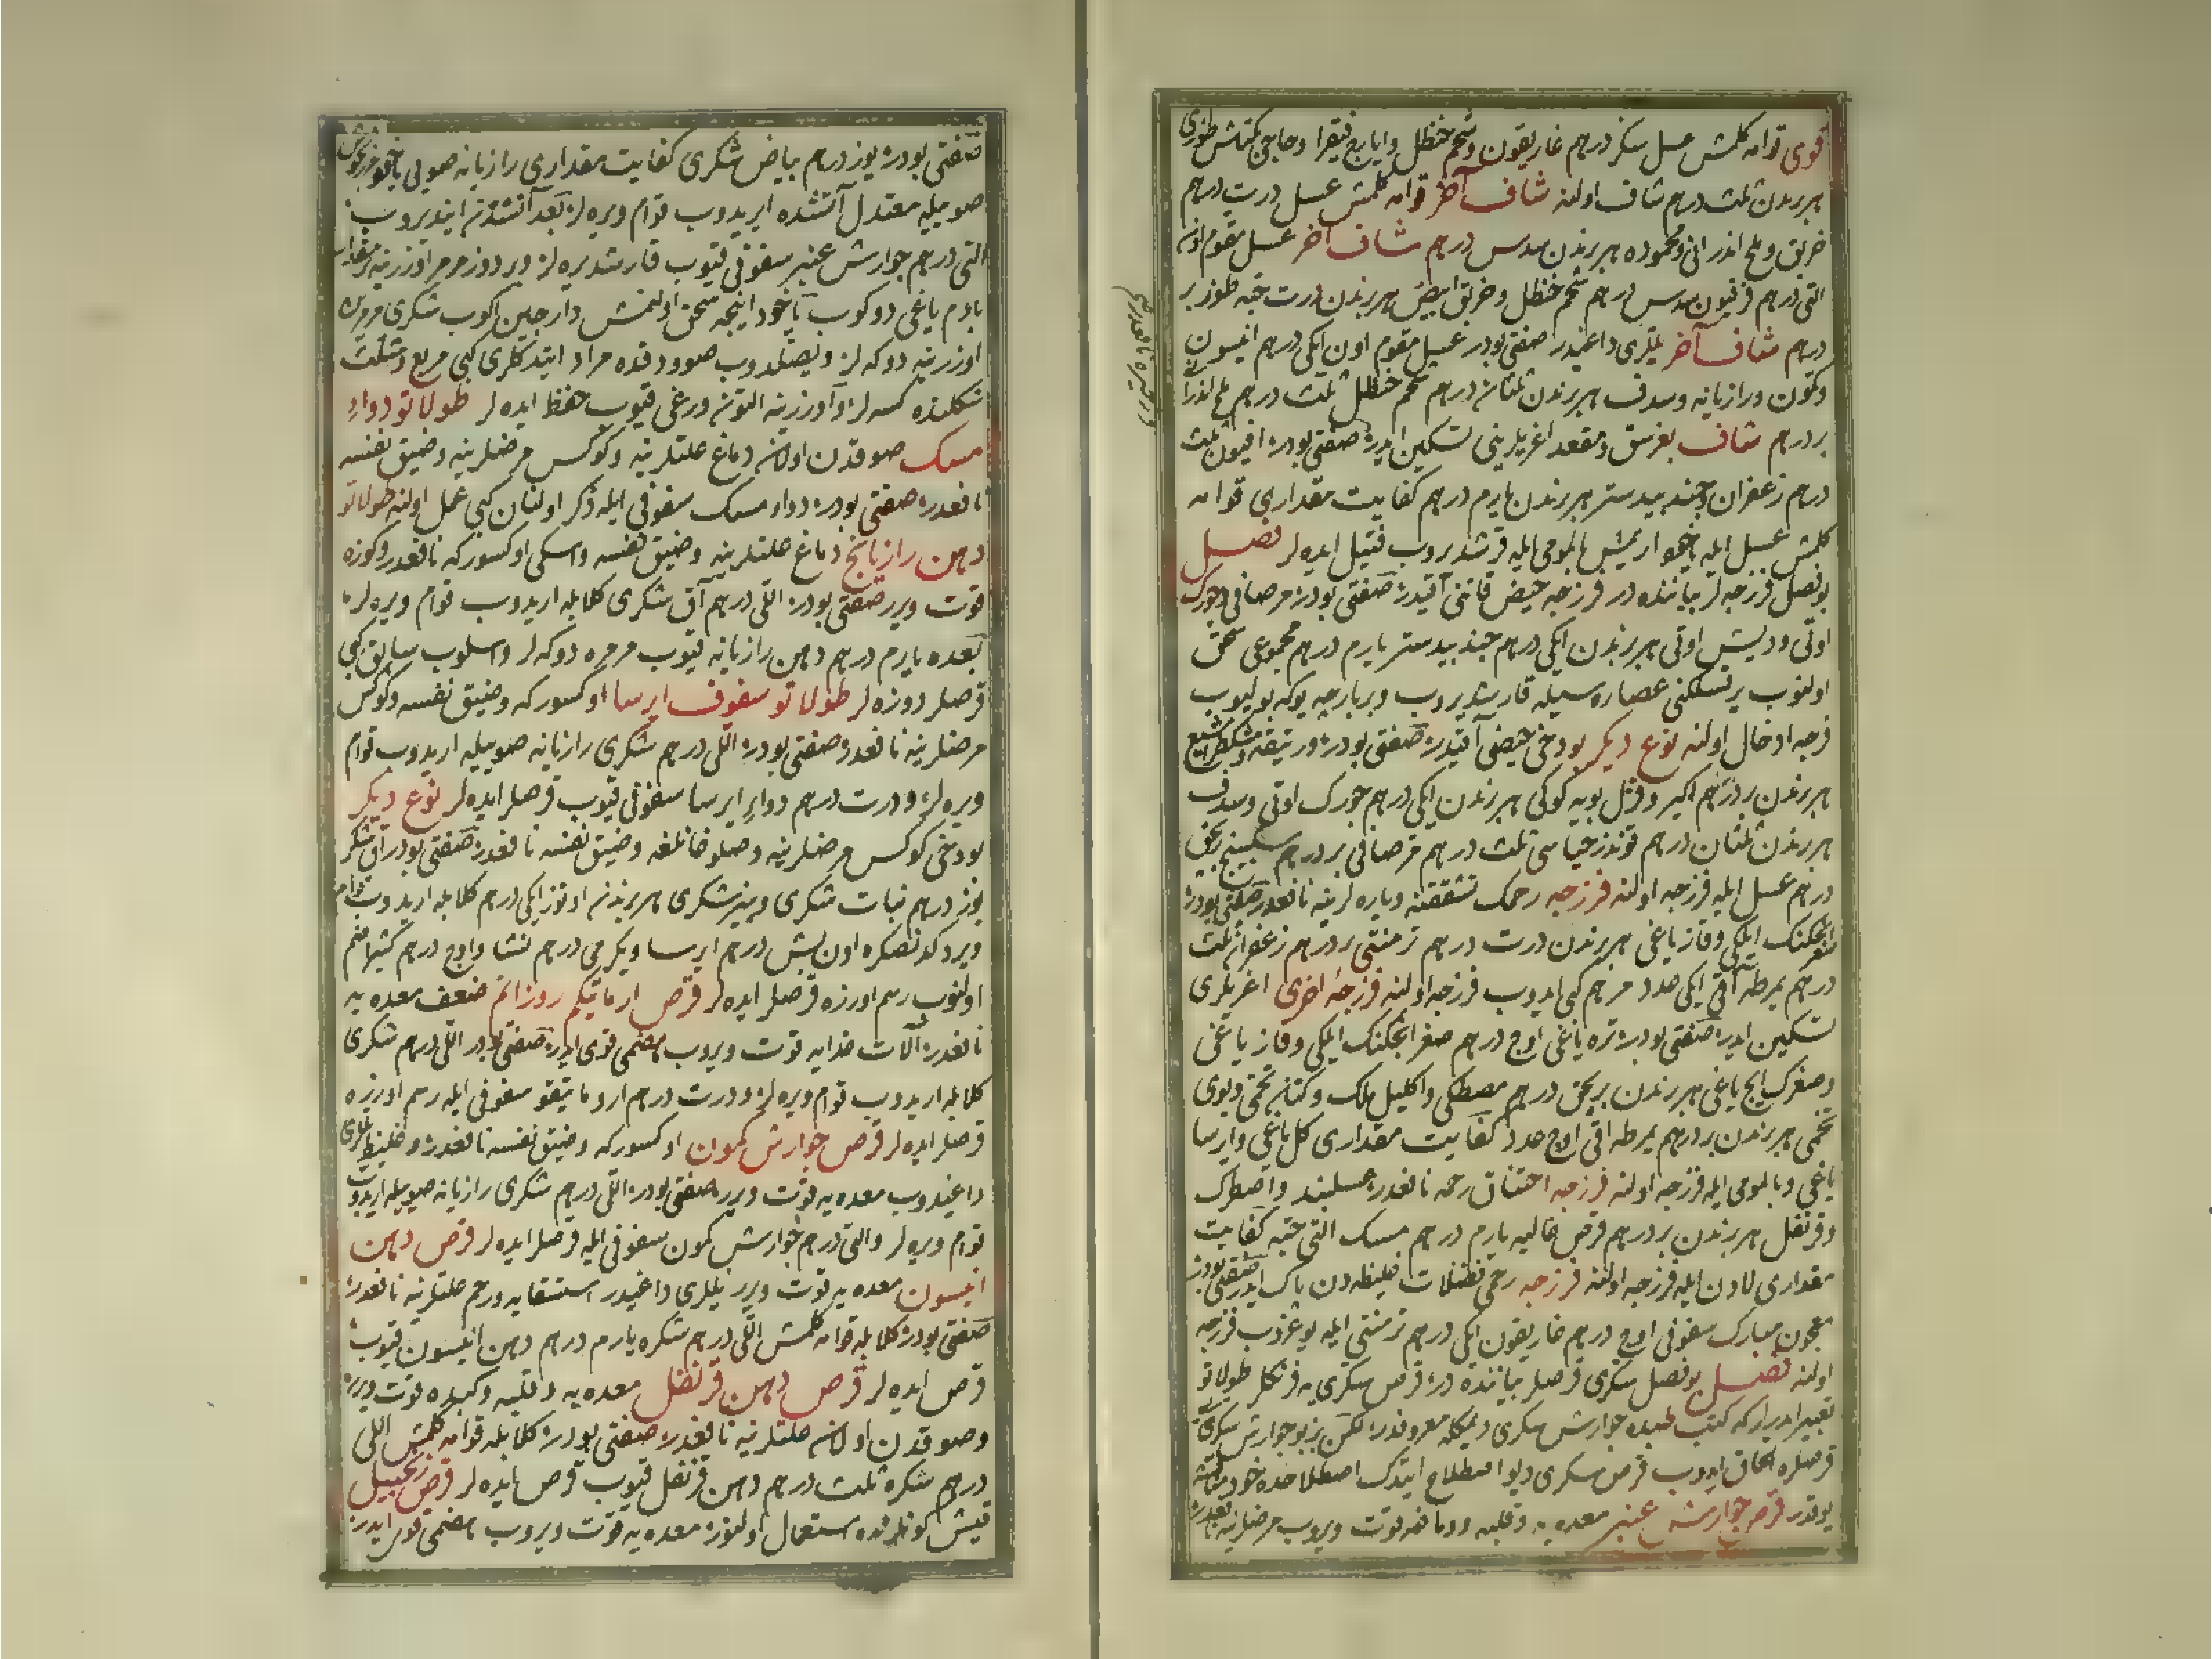 قوی قوامه كلمش عسل سكز درهم غاریقون و شحم حنظل و ایارج فیقرا و حاجی بكتاش طوزی
هر برندن ثلث درهم شاف اولنه شاف آخر قوامه كلمش عسل درت درهم
خربق و ملح اندرانی و محموده هر برندن سدس درهم شاف آخر عسل مقوم اون
التی درهم فرفیون سدس درهم شحم حنظل و خربق ابیض هر برندن درت حبه طوز بر
درهم شاف آخر یللری داغیدر صفتی بودر عسل مقوم اون ایكی درهم انیسون
و كمون و رازیانه و سدف هر برندن ثلثان درهم شحم حنظل ثلث درهم ملح اندرانی
بر درهم شاف بغرسق و مقعد اغریلرینی تسكین ایدر صفتی بودر افیون ثلث
درهم زعفران و جند بیدستر هر برندن یارم درهم كفایت مقداری قوامه
كلمش عسل ایله یاخود اریمش بالمومی ایله قرشدیروب فتیل ایده لر فصل
بو فصل فرزجه لر بیاننده در فرزجه حیض قاننی آقیدر صفتی بودر مر صافی و چورك
اوتی و دیش اوتی هر برندن ایكی درهم جند بیدستر یارم درهم مجموعی سحق
اولنوب پرنسكنی عصاره سیله قارشدیروب و بر پارچه یوكه بولیوب
فرجه ادخال اولنه نوع دیكر بو دخی حیضی آقیدر صفتی بودر
هر برندن بر درهم اكیر و قزل بویه كوكی هر برندن ایكی درهم چورك اوتی و سدف
هر برندن ثلثان درهم قوندز خیاسی ثلث درهم مر صافی بر درهم سكبینج
درهم عسل ایله فرزجه اولنه فرزجه رحمك تشققنه و یاره لرینه نافعدر صفتی بودر
ایلكی و قاز یاغی هر برندن درت درهم ترمنتی بر درهم زعفران ثلث
درهم یمرطه آقی ایكی عدد مرهم كبی ایدوب فرزجه اولنه فرزجه اخری اغریلری
تسكین ایدر صفتی بودر تره یاغی اوچ درهم صغر ایلكی و قاز یاغی
و صغرك ایچ یاغی هر برندن بر بچق درهم مصطكی و اكلیل ملك و كتان تخمی و بوی
تخمی هر برندن بر درهم یمرطه آقی اوچ عدد كفایت مقداری كل یاغی و ایرسا
یاغی و بالمومی ایله فرزجه اولنه فرزجه احتناق رحمه نافعدر عسلبند و اصطرك
و قرنفل هر برندن بر درهم قرص غالیه یارم درهم مسك التی حبه كفایت
مقداری لادن ایله فرزجه اولنه فرزجه رحمی فضلات غلیظه دن پاك ایدر صفتی بودر
معجون مبارك سفوفی اوچ درهم غاریقون ایكی درهم ترمنتی ایله یوغروب فرزجه
اولنه فصل بو فصل سكری قرصلر بیاننده در قرص سكری یه فرنكلر طولاتو
تعبیر ایدرلر كه كتب طبده جوارش سكری دیمكله معروفدر لكن بز بو جوارش سكری
قرصلره الحاق ایدوب قرص سكری دیو اصطلاح ایتدك اصطلاحده خود
یوقدر قرص جوارش عنبر معده یه و قلبه و دماغه قوت ویروب مرضلرینه نافعدر
صفتی بودر یوز درهم بیاض شكری كفایت مقداری رازیانه صویی یاخود
صوییله معتدل آتشده اریدوب قوام ویره لر بعد آتشدن ایندیروب
التی درهم جوارش عنبر سفوفی قیوب قارشدیره لر و بر دوز مرمر اوزرینه بر مقدار
بادم یاغی دوكوب یاخود اینجه سحق اولنمش دارچین اكوب شكری مرمرك
اوزرینه دوكه لر و یصیلدوب صوودقده مراد ایتدكلری كبی مربع و مثلث
شكلنده كسه لر و اوزرینه التون ورغی قیوب حفظ ایده لر طولاتو دواء
مسك صوقدن اولان دماغ علتلرینه و كوكس مرضلرینه و ضیق نفسه
نافعدر صفتی بودر دواء مسك سفوفی ایله ذكر اولنان كبی عمل اولنه طولاتو
دهن رازیانج دماغ علتلرینه و ضیق نفسه و اسكی اوكسوركه نافعدر و كوزه
قوت ویرر صفتی بودر اللی درهم آق شكری كلابله اریدوب قوام ویره لر
بعده یارم درهم دهن رازیانه قیوب مرمره دوكه لر و اسلوب سابق كبی
قرصلر دوزه لر طولاتو سفوف ایرسا اوكسوركه و ضیق نفسه و كوكس
مرضلرینه نافعدر صفتی بودر اللی درهم شكری رازیانه صوییله اریدوب قوام
ویره لر و درت درهم دواء ایرسا سفوفی قیوب قرصلر ایده لر نوع دیكر
بو دخی كوكس مرضلرینه و صلوغانلغه و ضیق نفسه نافعدر صفتی بودر آق شكر
یوز درهم نبات شكری و پنیر شكری هر برندن اوتوز ایكی درهم كلابله اریدوب قوام
ویردكدنصكره اون بش درهم ایرسا و یكرمی درهم نشا و اوچ درهم كثیرا ضم
اولنوب رسم اوزره قرصلر ایده لر قرص ارماتیكم روزاتم ضعف معده یه
نافعدر آلات غذایه قوت ویروب هضمی قوی ایدر صفتی بودر اللی درهم شكری
كلابله اریدوب قوام ویره لر و درت درهم اروماتیقو سفوفی ایله رسم اوزره
قرصلر ایده لر قرص جوارش كمون اوكسوركه و ضیق نفسه نافعدر و غلیظ یللری
داغیدوب معده یه قوت ویرر صفتی بودر اللی درهم شكری رازیانه صوییله اریدوب
قوام ویره لر و التی درهم جوارش كمون سفوفی ایله قرصلر ایده لر قرص دهن
انیسون معده یه قوت ویرر یللری داغیدر استسقایه و رحم علتلرینه نافعدر
صفتی بودر كلابله قوامه كلمش اللی درهم شكره یارم درهم دهن انیسون قیوب
قرص ایده لر قرص دهن قرنفل معده یه و قلبه و كبده قوت ویرر
و صوقدن اولان علتلرینه نافعدر صفتی بودر كلابله قوامه كلمش اللی
درهم شكره ثلث درهم دهن قرنفل قیوب قرص ایده لر قرص زنجبیل
قیش كونلرنده استعمال اولنور معده یه قوت ویروب هضمی قوی ایدر